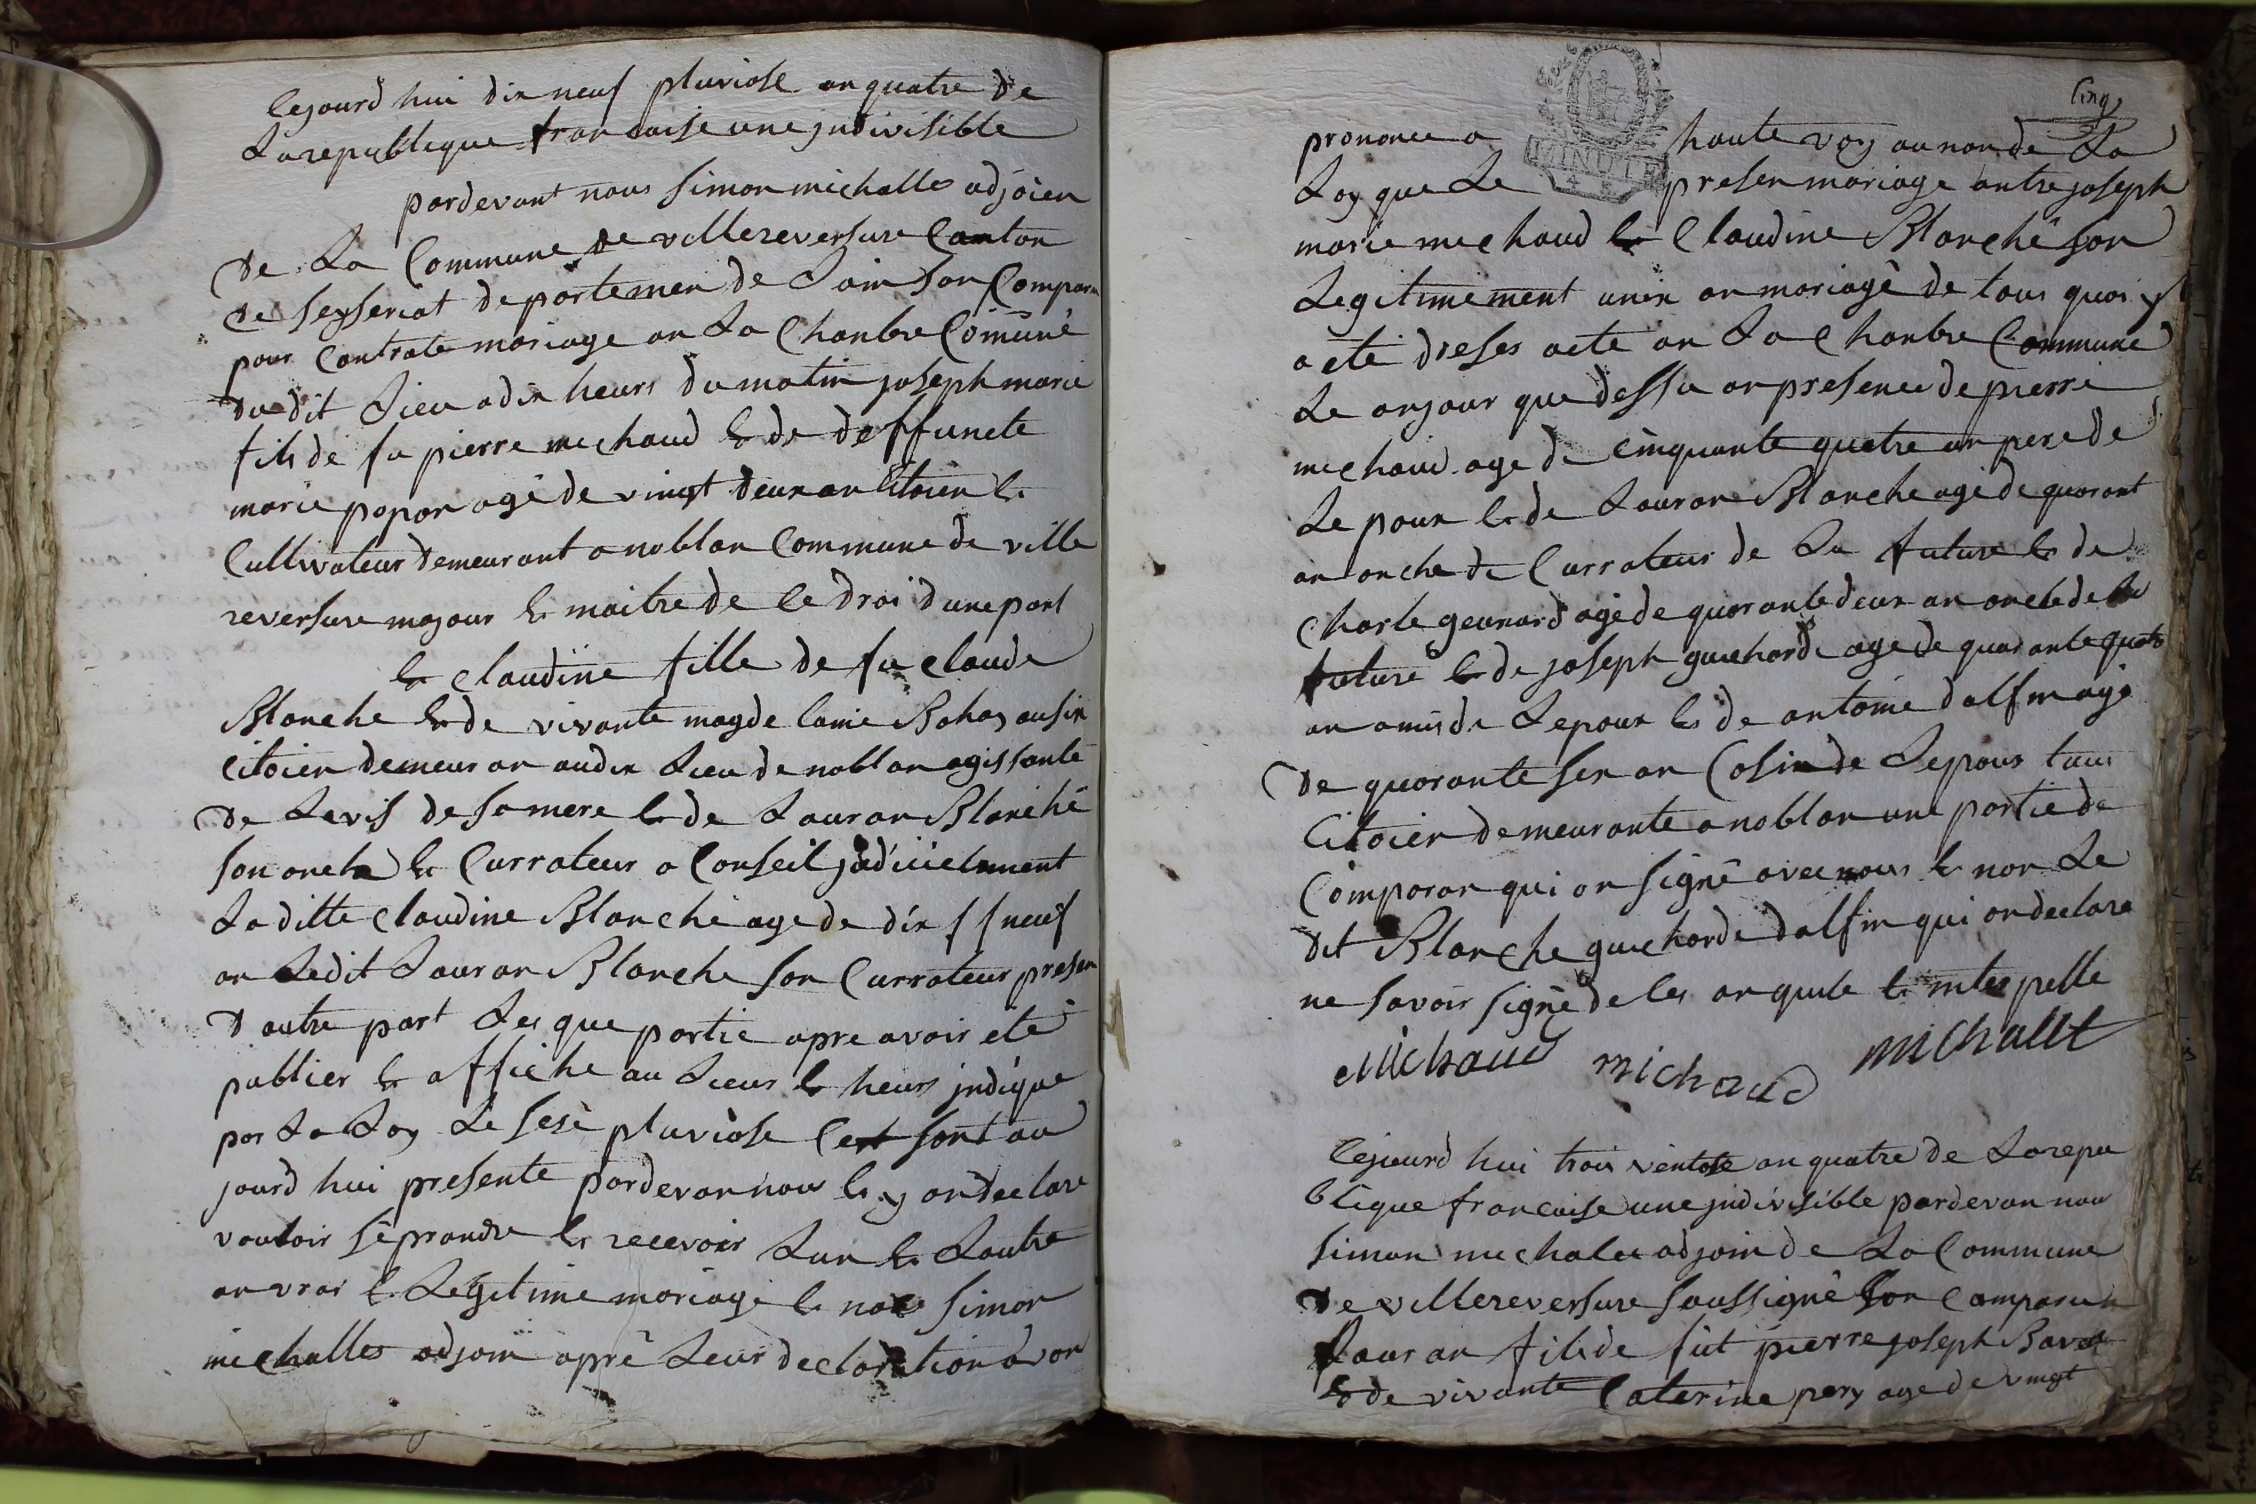 Cejourd hui dix neuf pluviose an quatre de
La republique francaise une jndivisible
pardevant nous simon michallet adjoien
de La Commune de villereversure Canton
de seyseriat departemen de Lain son Comparu
pour Contrate mariage an La Chanbre Comune
du dit Lieu a dix heurs du matin joseph marie
fils de fu pierre michaud & de deffuncte
marie popon agé de vingt deux an Citoien &
Cultivateur demeurant a noblan Commune de ville
reversure majour & maitre de Ce droi dune part
& claudine fille de fu claude
Blanche & de vivante magdelaine Bohas ausix
Citoien demeuran audix Lieu de noblan agissante
de Lavis de sa mere & de Lauran Blanche
son oncle & Currateur a Conseil judicielement
La ditte claudine Blanche age de dix neuf
an Ledit Lauran Blanche son Currateur presen
d autre part Les que partie apre avoir eté
publier & affiche au Lieus & heurs jndique
par La Loy Le sese pluviose Cest sont au
jourd hui presente pardevan nous & y on declare
vouloir se prandre & recevoir Lun & Lautre
an vrai & Legitime mariage & nous simon
michallet adjoin apré Leur declaration avon
Cinq
prononce a haute voy au non de La
Loy que Le presen mariage antre joseph
marie michaud & Claudine Blanche son
Legitimement unix an mariage de tous quoi y
a eté dreses acte an La Chanbre Commune
Le an jour que dessu an presence de pierre
michaud age de cinquante quatre an pere de
Le poux & de Lauran Blanche agé de quarant
an oncle & Currateur de La future & de
Charle geunard agé de quarante deux an oncle de La
future & de joseph guichard age de quarante quatre
an amis de Lepoux & de antoine dalfin agé
de quarante sex an Cosin de Lepoux tous
Citoien demeurante a noblan une partie de
Comparan qui on signé avec nous & non Le
dit Blanche guicharde dalfin qui on declare
ne savoir signé de Ces anquile & interpelle
Michaud michaud michallet
Cejourd hui trois ventose an quatre de La repu
blique francaise une jndivisible pardevan nou
simon michalet adjoin de La Commune
de villereversure soussigné son Comparu
Lauran fils de fut pierre joseph
& de vivante Caterine pery age de vingt